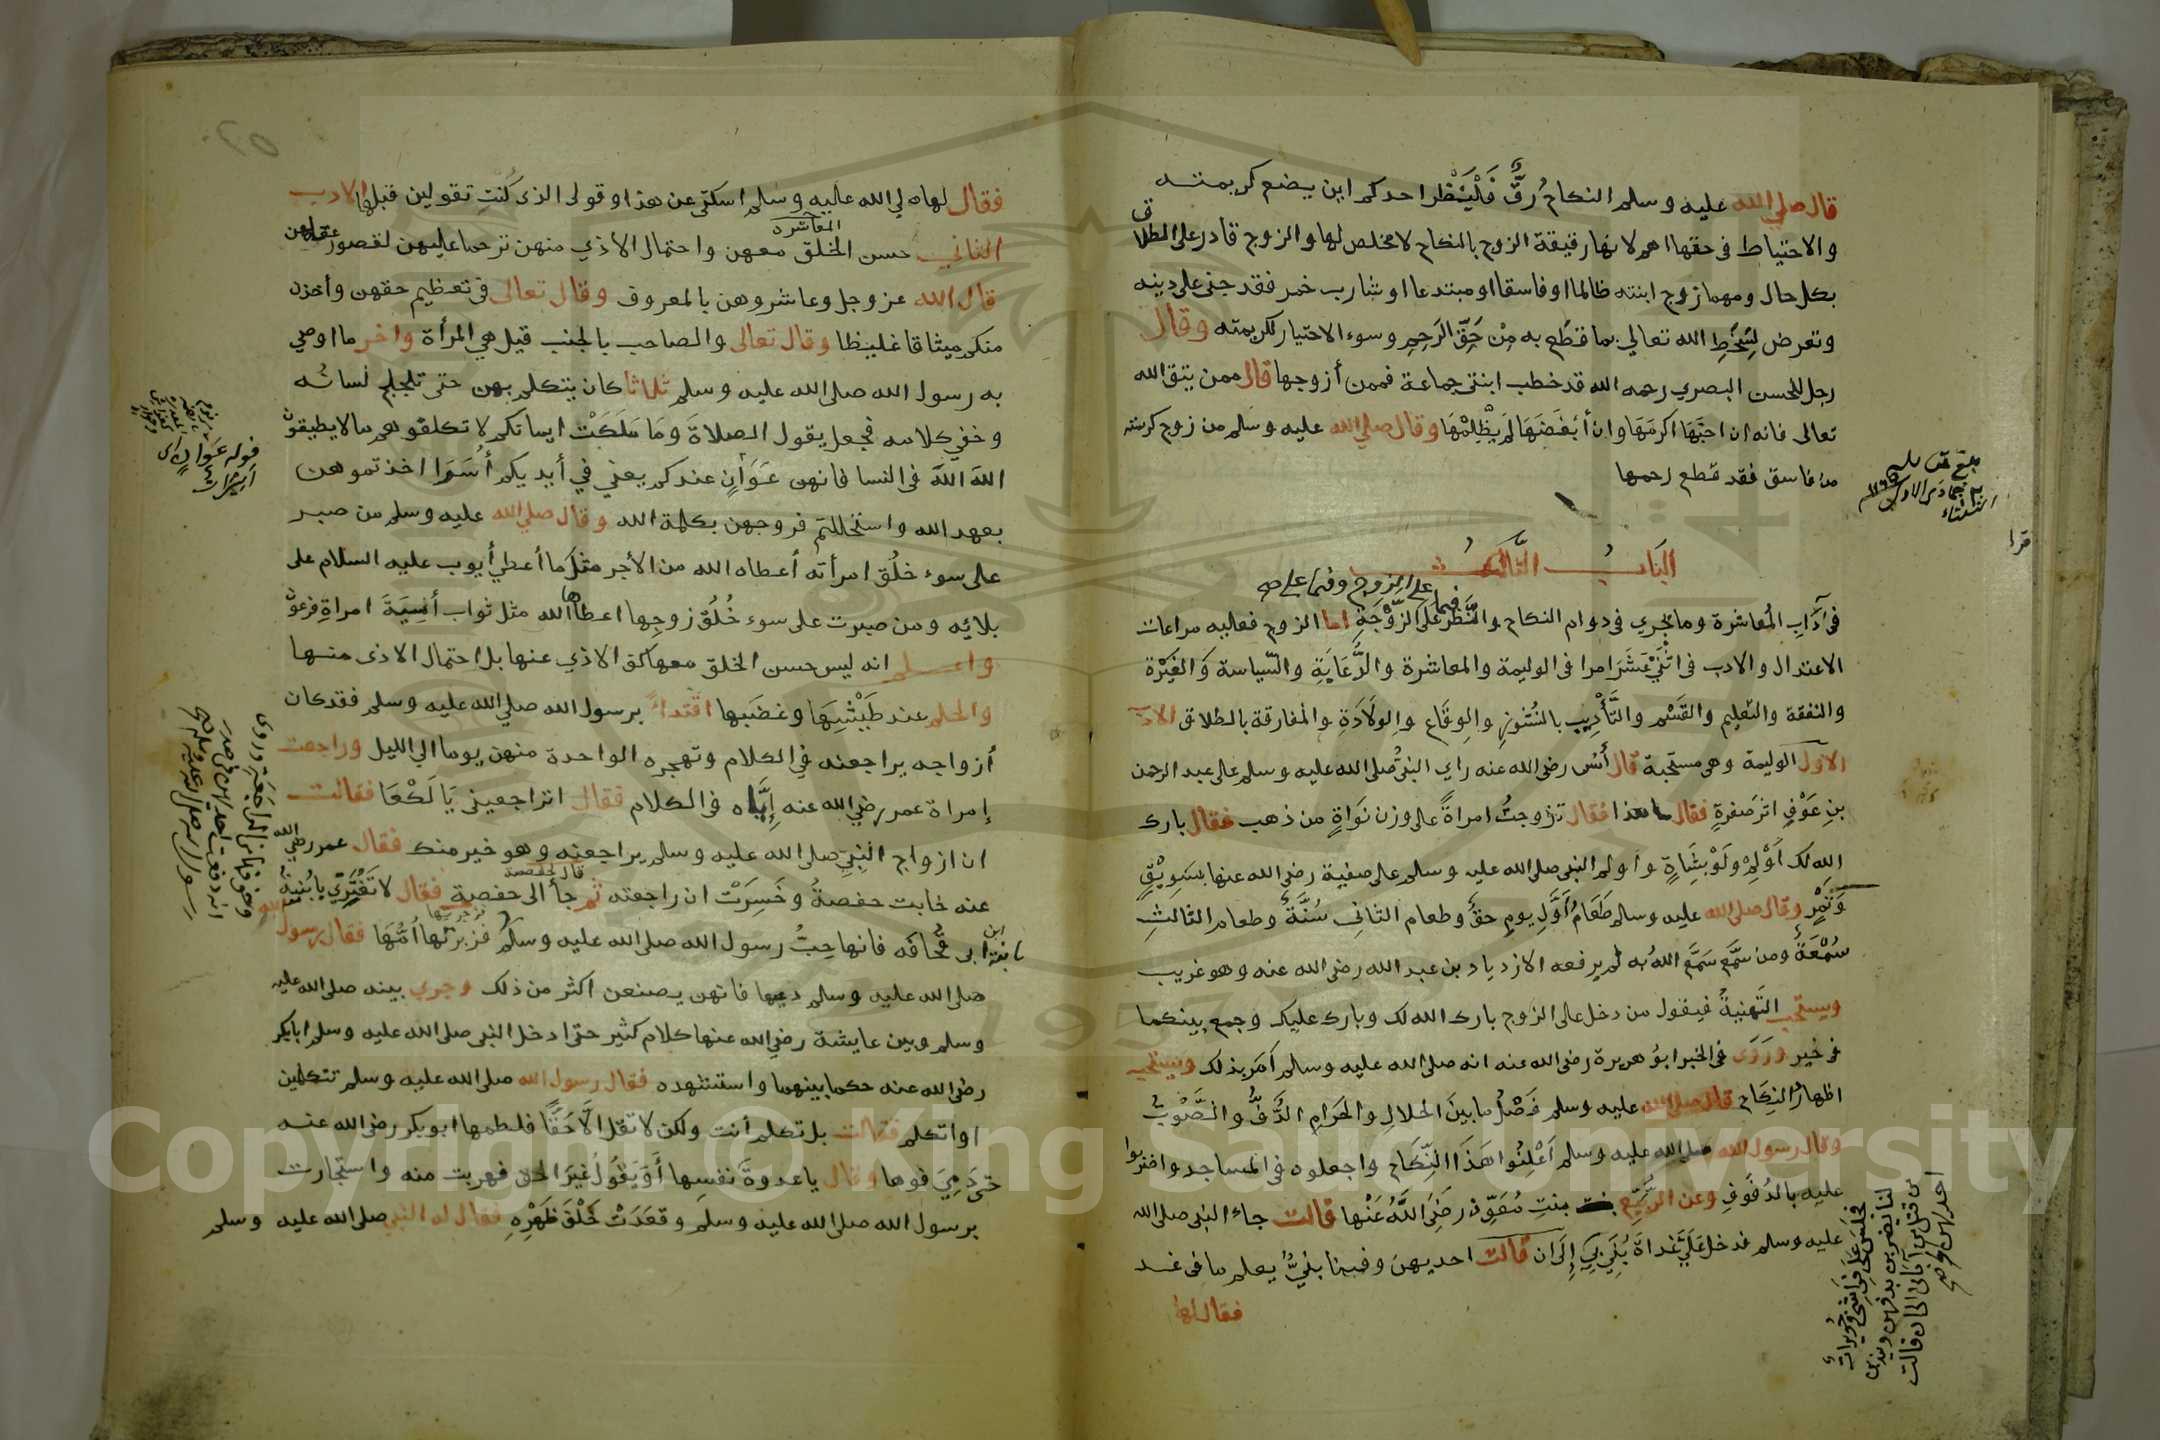 قال صلي الله عليه وسلم النكاح رق فلينظر احدكم اين يضع كريمته
والاحتياط في حقها اهم لانها رقيقة الزوج بالنكاح لا مخلص لها والزوج قادر علي الطلاق
بكل حال ومهما زوج ابنته ظالما او فاسقا او مبتدعا او شارب خمر فقد جني علي دينه
وتعرض لسخط الله تعالي بما قطع به من حق الرحم وسوء الاختيار لكريمته وقال
رجل للحسن البصري رحمه الله قد خطب ابنتي جماعة فممن أزوجها قال ممن يتق الله
تعالى فانه ان احبها اكرمها وان أبغضها لم يظلمها وقال صلي الله عليه وسلم من زوج كريمته
من فاسق فقد قطع رحمها
الباب الثالث
في آداب المعاشرة وما يجري في دوام النكاح والنظر فيما على الزوج وفيما على الزوجة اما الزوج فعليه مراعات
الاعتدال والادب في اثني عشر امرا في الوليمة والمعاشرة والدعابة والسياسة والغيرة
والنفقة والتعليم والقسم والتأديب بالنشوز والوقاع والولادة والمفارقة بالطلاق الادب
الاول الوليمة وهي مستحبة قال أنس رضي الله عنه راي النبي صلى الله عليه وسلم على عبد الرحمن
بن عوف اثر صفرة فقال ما هذا فقال تزوجت امراة على وزن نواة من ذهب فقال بارك
الله لك أولم ولو بشاة وأولم النبي صلى الله عليه وسلم على صفية رضي الله عنها بسويق
وتمر وقال صلى الله عليه وسلم طعام أول يوم حق وطعام الثاني سنة وطعام الثالث
سمعة ومن سمع سمع الله به لم يرفعه الا زياد بن عبد الله رضي الله عنه وهو غريب
ويستحب التهنية فيقول من دخل على الزوج بارك الله لك وبارك عليك وجمع بينكما
في خير وروى في الخبر ابو هريرة رضي الله عنه انه صلى الله عليه وسلم أمر بذلك ويستحب
اظهار النكاح قال صلى الله عليه وسلم فصل ما بين الحلال والحرام الدف والصوت
وقال رسول الله صلى الله عليه وسلم أعلنوا هذا النكاح واجعلوه في المساجد واضربوا
عليه بالدفوف وعن الربيع بنت معوذ رضي الله عنها قالت جاء النبي صلى الله
عليه وسلم فدخل علي غداة بني بي إلى ان قالت احديهن وفينا نبي يعلم ما في غد
فقال لها
بلغ
قرا
فجلس على فراشي وجويرات
لنا يضربن بدفهن ويندبن
من قتل من آبائي الى ان قالت
احديهن
فقال لها صلي الله عليه وسلم اسكتي عن هذا وقولى الذي كنت تقولين قبلها الادب
الثاني حسن الخلق معهن واحتمال الاذي منهن ترحما عليهن لقصور عقلهن
المعاشرة
قال الله عز وجل وعاشروهن بالمعروف وقال تعالى في تعظيم حقهن وأخذن
منكم ميثاقا غليظا وقال تعالى والصاحب بالجنب قيل هي المرأة واخر ما اوصي
به رسول الله صلى الله عليه وسلم ثلاثا كان يتكلم بهن حتى تلجلج لسانه
وخفي كلامه فجعل يقول الصلاة وما ملكت ايمانكم لا تكلفوهم ما لا يطيقون
الله الله في النسا فانهن عوان عندكم يعني في أيديكم أسرا اخذتموهن
بعهد الله واستحللتم فروجهن بكلمة الله وقال صلي الله عليه وسلم من صبر
على سوء خلق امرأته أعطاه الله من الأجر مثل ما أعطي أيوب عليه السلام على
بلائه ومن صبرت على سوء خلق زوجها اعطاها الله مثل ثواب أسية امراة فرعون
واعلم انه ليس حسن الخلق معها كف الاذي عنها بل احتمال الاذى منها
والحلم عند طيشها وغضبها اقتداء برسول الله صلي الله عليه وسلم فقد كان
أزواجه يراجعنه في الكلام وتهجره الواحدة منهن يوما الي الليل وراجعت
إمراة عمر رضي الله عنه إياه في الكلام فقال اتراجعيني يا لكعا فقالت
ان ازواج النبي صلى الله عليه وسلم يراجعنه وهو خير منك فقال عمر رضي الله
عنه خابت حفصة وخسرت ان راجعته ثم جأ الى حفصة فقال لا تغتري يا بنية
قال لحفصة
بابنة ابن ابي قحافه فانها حب رسول الله صلى الله عليه وسلم فزبرتها أمها فقال رسول
صلى الله عليه وسلم دعيها فانهن يصنعن اكثر من ذلك وجري بينه صلى الله عليه
وسلم وبين عايشة رضي الله عنها كلام كثير حتى ادخل النبي صلى الله عليه وسلم ابا بكر
رضي الله عنه حكما بينهما واستشهده فقال رسول الله صلى الله عليه وسلم تتكلمين
او اتكلم فقالت بل تكلم أنت ولكن لا تقل الا حقا فلطمها ابو بكر رضي الله عنه
حتى دمي فوها وقال يا عدوة نفسها أو يقول غير الحق فهربت منه واستجارت
برسول الله صلى الله عليه وسلم وقعدت خلف ظهره فقال له النبي صلى الله عليه وسلم
قوله عوان اي
اسيرات
Copyright © King Saud University
1957